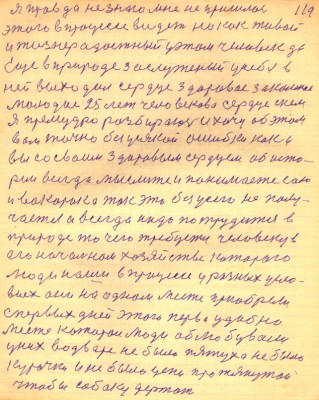 119
Я правда не знаю мне не пришлос
этого в процессе видет но как живой
и жизнерадостный этот человек да
Еще в природе заслуженый у себя в
ней выходил сердце Здаровае закаленое
молодые 25 лет человекова сердце
Я премудро разбираюс и хочу об этом
вам точно без всякой ошибки как
вы со своим Здаровым сердцем об исто-
рии всегда мыслите и понимаете
это без чего не полу-
чается а всегда надо потрудится в
природе то чего требуется человеку в
его началном хозяйстве которого
люди нашли в процессе и разных усло-
виех они на одном месте приобрели
с первых дней этого перво удобно
место которое люди облюбували
у них во дваре не было пятуха не было
курочки и не было цепи протянутой
чтобы собаку держат